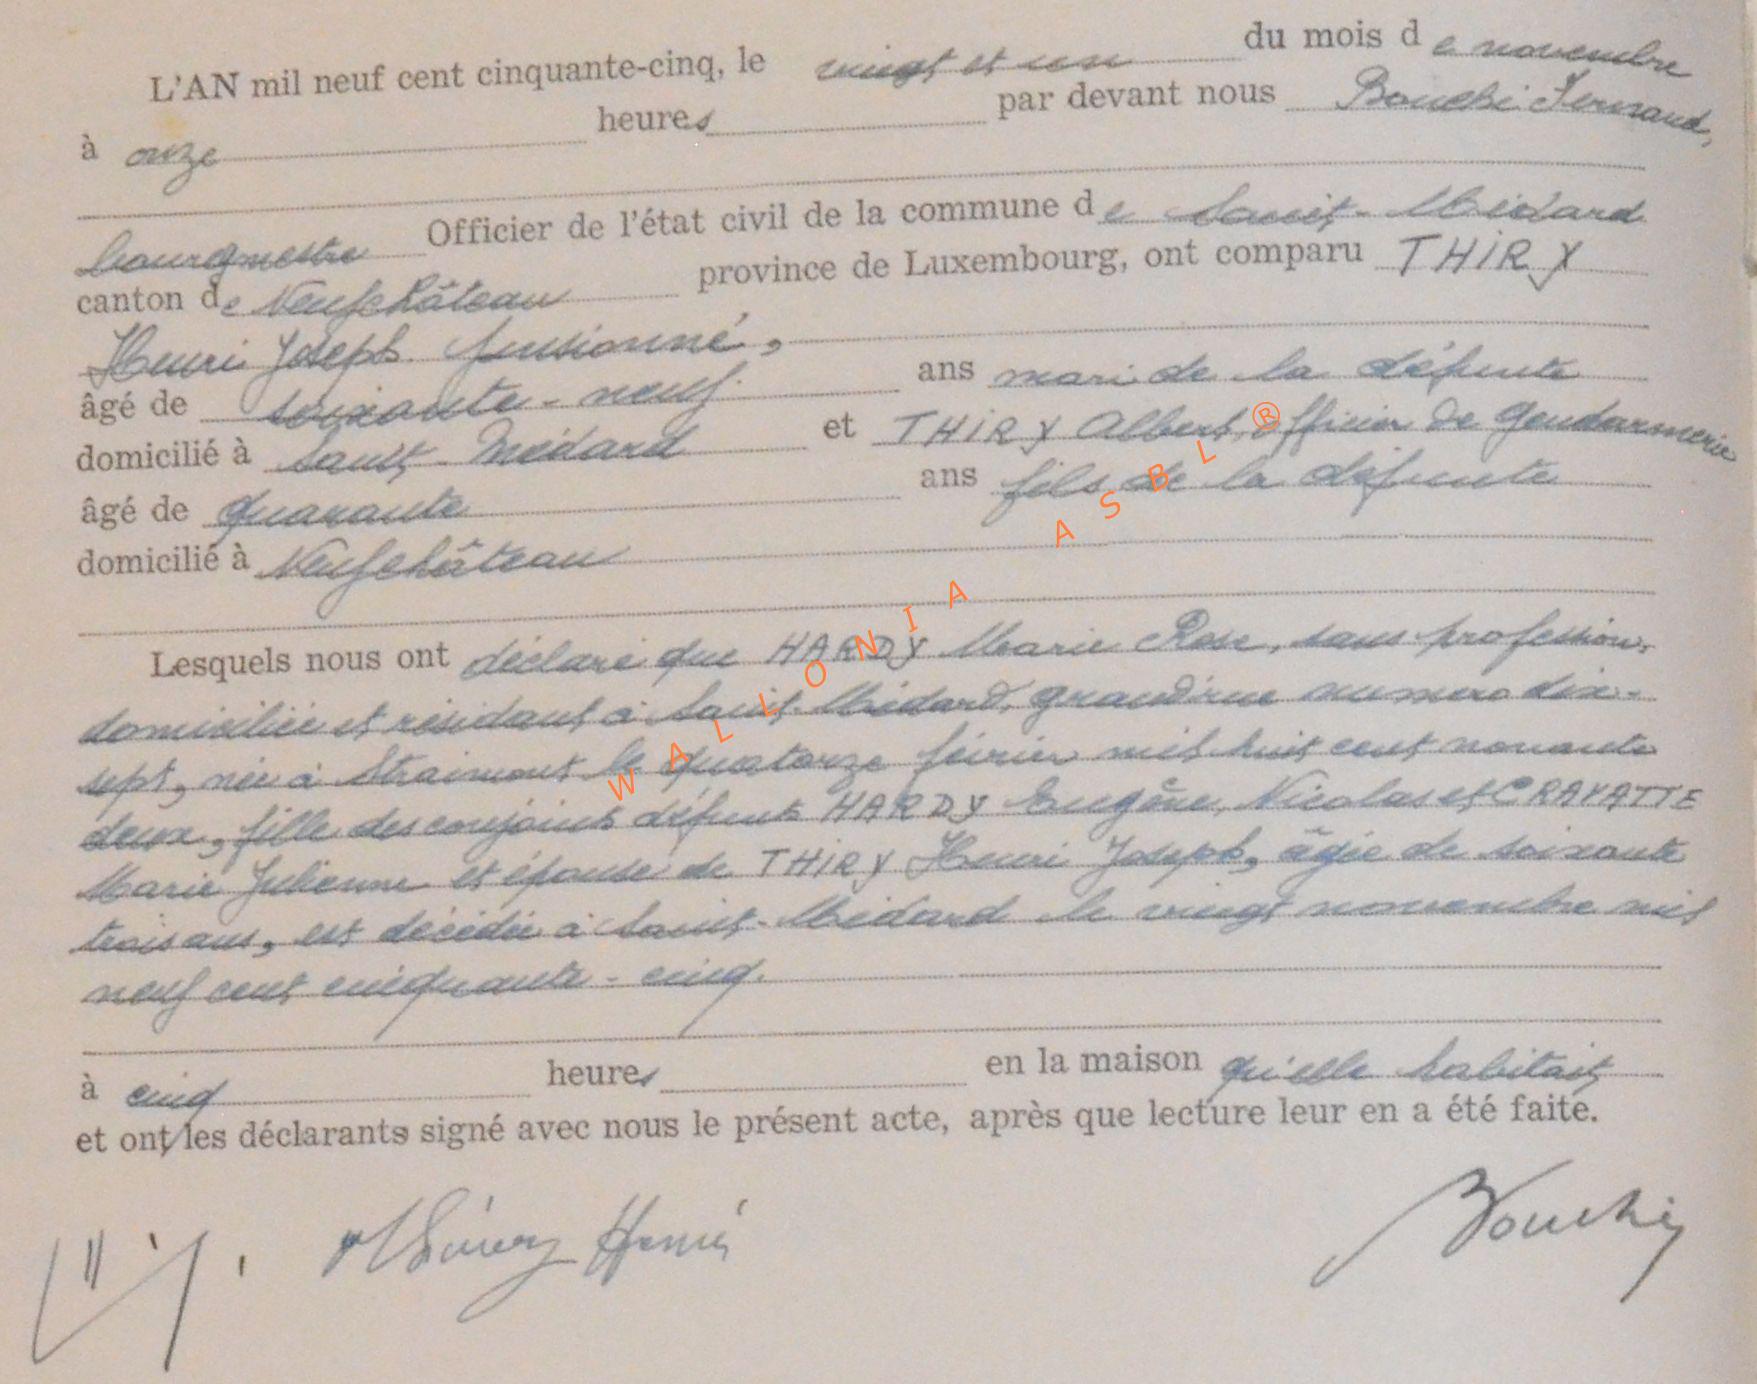 L'AN mil neuf cent cinquante-cinq, le vingt et un du mois de novembre
à onze heures par devant nous Bouché Fernand,
bourgmestre Officier de l'état civil de la commune de Saint-Médard
canton de Neufchâteau province de Luxembourg, ont comparu THIRY
Henri Joseph pensionné,
âgé de soixante-neuf ans mari de la défunte
domicilié à Saint-Médard et THIRY Albert, officier de Gendarmerie
âgé de quarante ans fils de la défunte
domicilié à Neufchâteau
Lesquels nous ont déclaré que HARDY Marie Rose, sans profession,
domiciliée et résidant à Saint-Médard, grand'rue numéro dix-
sept, née à Straimont le quatorze février mil huit cent nonante
deux, fille des conjoints défunts HARDY Eugène, Nicolas et CRAVATTE
Marie Julienne et épouse de THIRY Henri Joseph, âgée de soixante
trois ans, est décédée à Saint-Médard le vingt novembre mil
neuf cent cinquante-cinq.
à cinq heures en la maison qu'elle habitait
et ont les déclarants signé avec nous le présent acte, après que lecture leur en a été faite.
Henri Bouché
WALLONIA ASBL ®